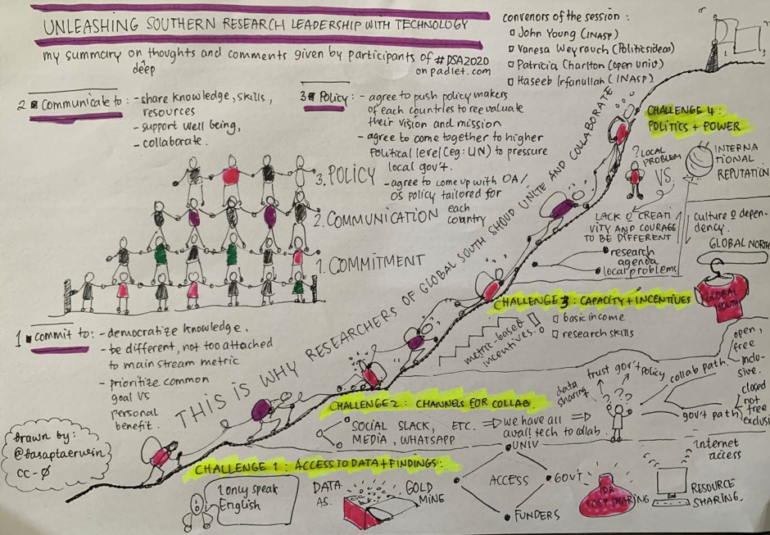 UNLEASHING SOUTHERN RESEARCH LEADERSHIP WITH TECHNOLOGY
my summary on thoughts and comments given by participants of #DSA2020
deep
on padlet.com
convenors of the session :
John Young (INASP)
Vanesa Weyrauch (Politics&ideas)
Patricia Charlton (open univ)
Haseeb Irfanullah (INASP)
2 Communicate to : - share knowledge, skills,
resources
- support well being,
- collaborate.
3 Policy : - agree to push policy makers
of each countries to reevaluate
their vision and mission
- agree to come together to higher
political level (eg: UN) to pressure
local gov't.
- agree to come up with OA/
OS policy tailored for
each
country
3. POLICY
2. COMMUNICATION
1. COMMITMENT
1 commit to : - democratize knowledge.
- be different, not too attached
to main stream metric
- prioritize common
goal vs
personal
benefit.
THIS IS WHY RESEARCHERS OF GLOBAL SOUTH SHOUD UNITE AND COLLABORATE
CHALLENGE 4 :
POLITICS + POWER
? LOCAL
PROBLEM
VS.
INTERNA
TIONAL
REPUTATION
LACK OF CREATI
VITY AND COURAGE
TO BE DIFFERENT
research
agenda
local problems
culture of depen-
dency.
GLOBAL NORTH
GLOBAL
SOUTH
CHALLENGE 3 : CAPACITY + INCENTIVES
metric-based
incentives
basic income
research skills
CHALLENGE 2 : CHANNELS FOR COLLAB.
SOCIAL SLACK, ETC.
MEDIA, WHATSAPP
we have all
avail tech to collab.
data
sharing
trust gov't policy
collab path
open,
free
inclu-
sive.
gov't path
closed
not
free
exclusi
CHALLENGE 1 : ACCESS TO DATA + FINDINGS
I only speak
English
DATA
AS
GOLD
MINE
ACCESS
UNIV
GOV'T
FUNDERS
FOR
COST SHARING
internet
access
RESOURCE
SHARING.
Drawn by :
@dasaptaerwin
CC-0